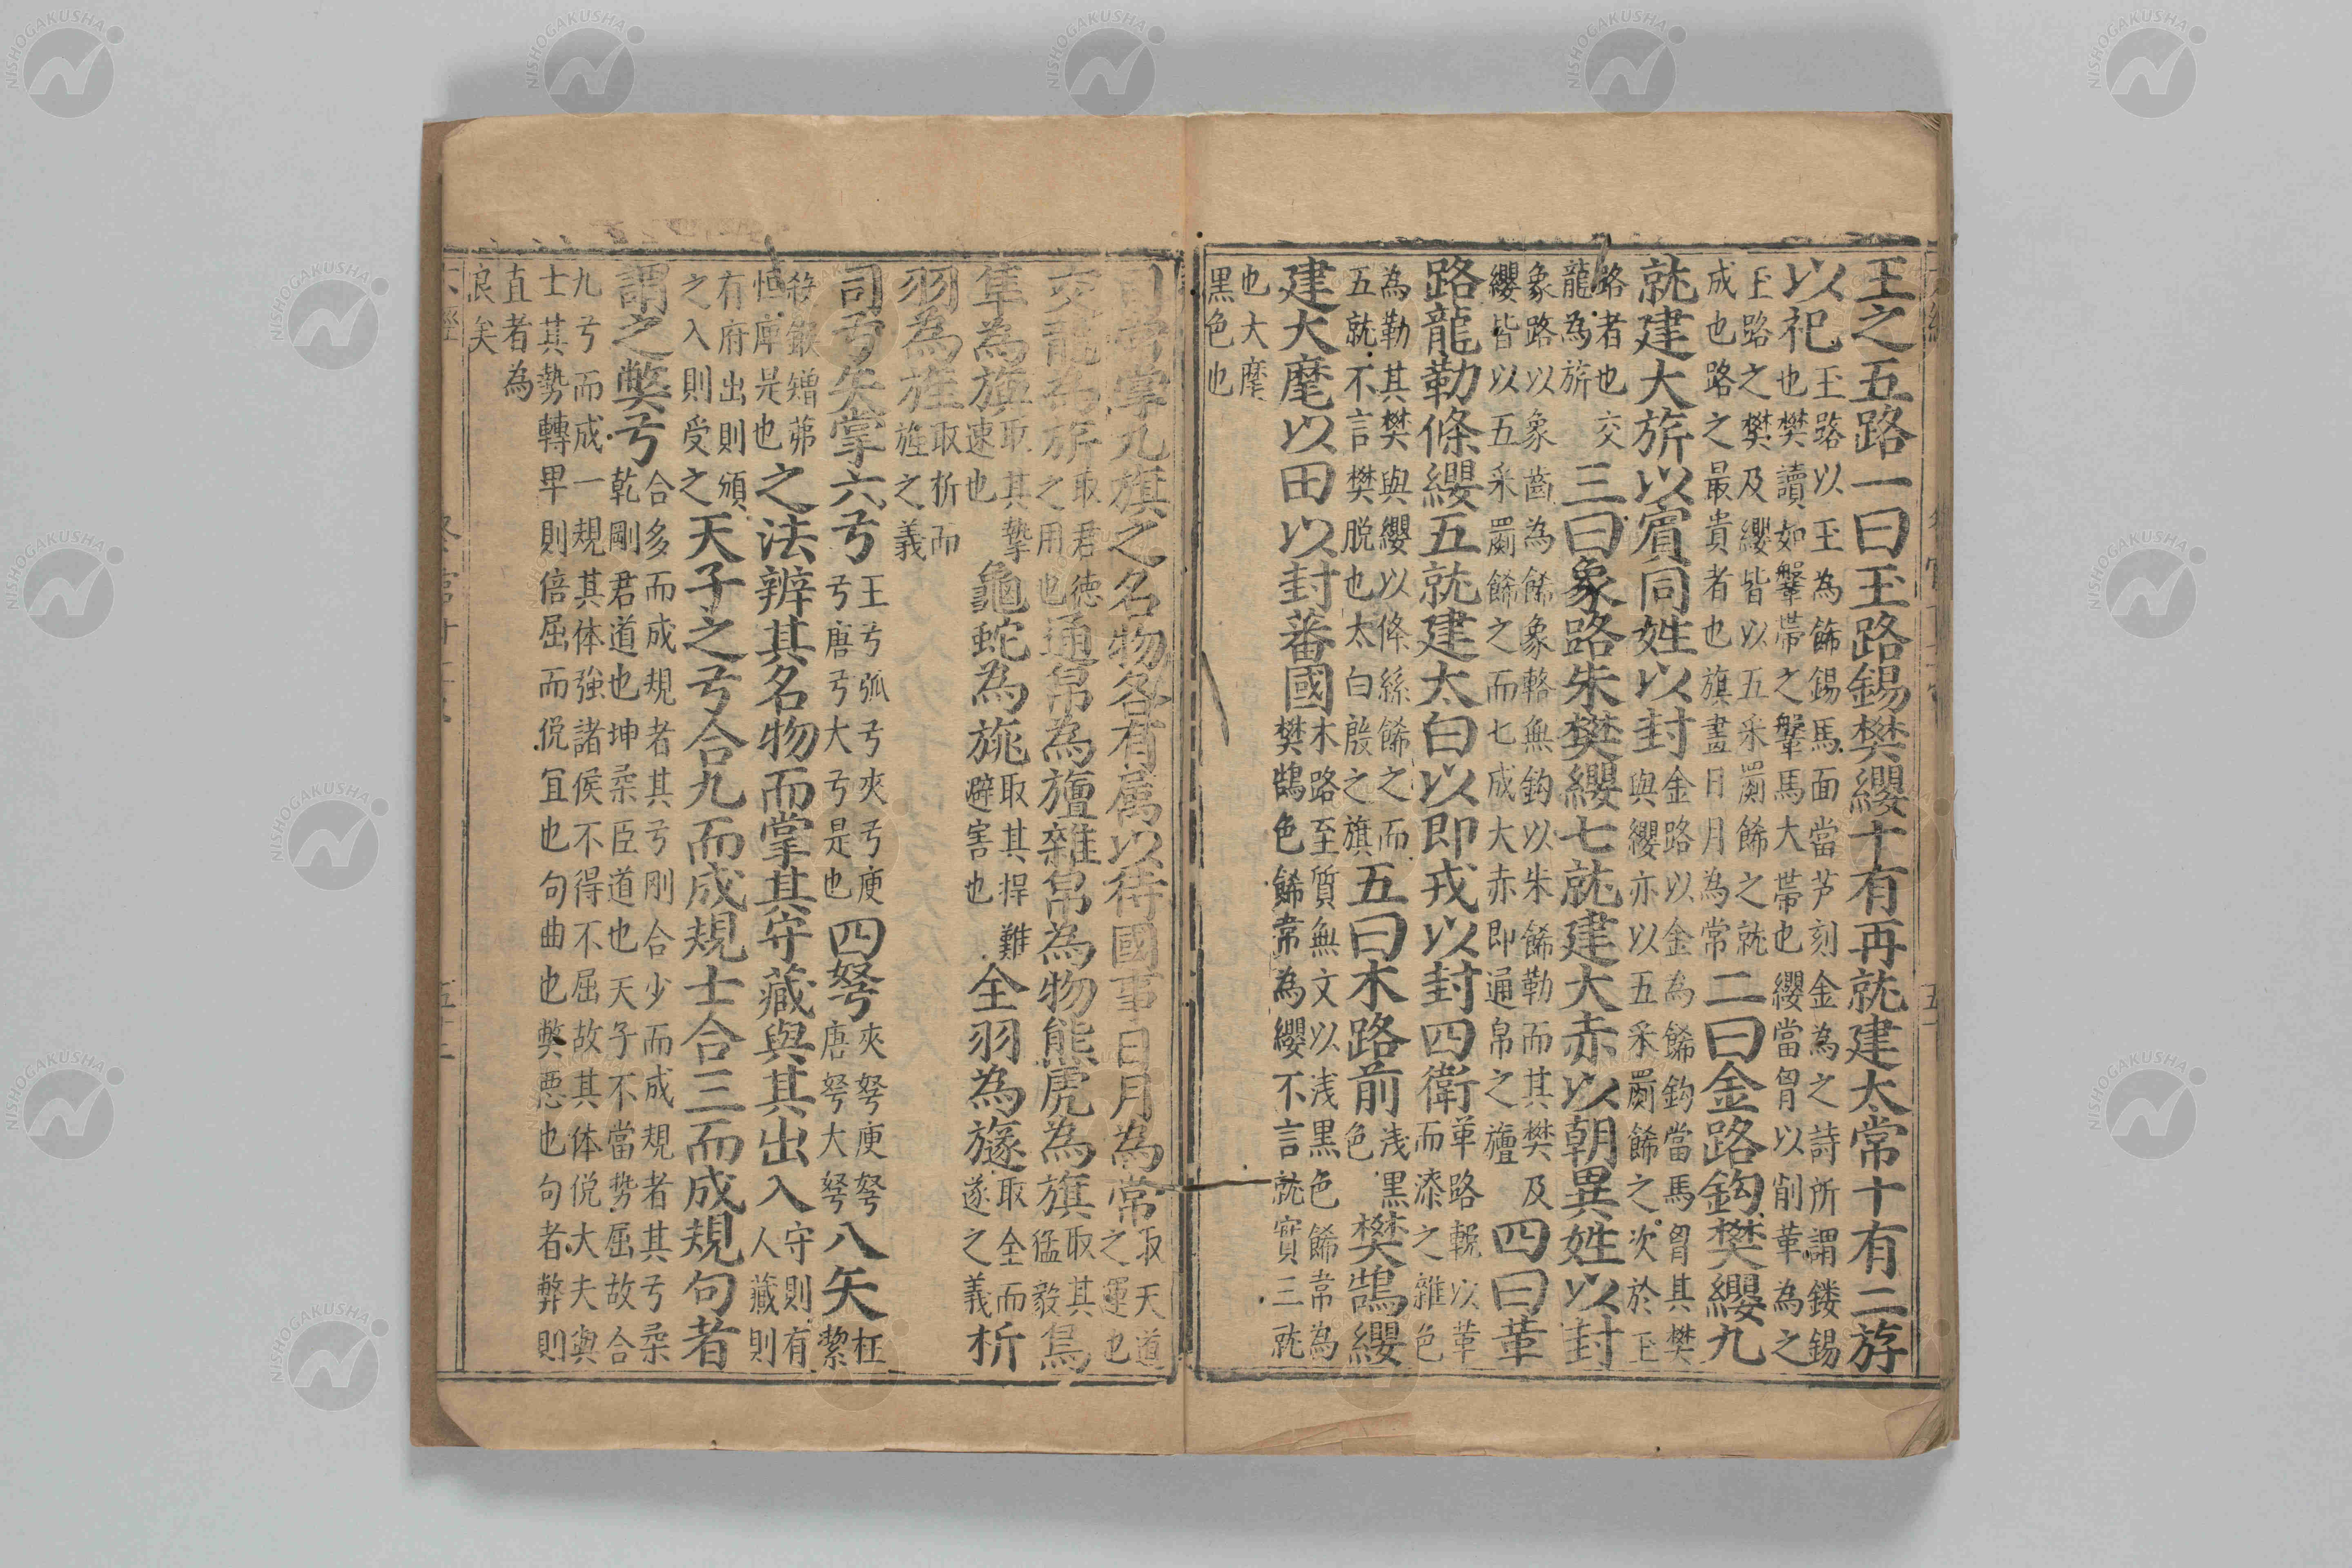 王之五路一曰玉路錫樊纓十有再就建太常十有二斿
以祀玉路以玉為餙錫馬面當芦刻金為之詩所謂鏤錫
也樊讀如鞶帯之鞶馬大帯也纓當胷以削革為之
玉路之樊及纓皆以五采罽餙之就
成也路之最貴者也旗畫日月為常二曰金路鈎樊纓九
就建大旂以賓同姓以封金路以金為餙鈎當馬胷其樊
與纓亦以五采罽餙之次於玉
路者也交
龍為旂三曰象路朱樊纓七就建大赤以朝異姓以封
象路以象齒為餙象輅無鈎以朱餙勒而其樊及
纓皆以五采罽餙之而七成大赤即通帛之旜四曰革
路龍勒條纓五就建太白以即戎以封四衛革路輓以革
而漆之雜色
為勒其樊與纓以絛絲餙之而
五就不言樊脱也太白殷之旗五曰木路前淺黒
色樊鵠纓
建大麾以田以封蕃國木路至質無文以浅黒色餙常為
樊鵠色餙常為纓不言就實三就
也大麾
黒色也
司常掌九旗之名物各有属以待國事日月為常取天道
之運也
交龍為旂取君徳
之用也通帛為旜雜帛為物熊虎為旗取其
猛毅鳥
隼為旟取其摯
速也龜蛇為旐取其捍難
避害也全羽為旞取全而
遂之義析
羽為旌取析而
旌之義
司弓矢掌六弓王弓弧弓夾弓庾
弓唐弓大弓是也四弩夾弩庾弩
唐弩大弩八矢枉
絜
殺鍭矰茀
恒庳是也之法辨其名物而掌其守藏與其出入守則有
人藏則
有府出則頒
之入則受之天子之弓合九而成規士合三而成規句者
謂之弊弓合多而成規者其弓剛合少而成規者其弓柔
乾剛君道也坤柔臣道也天子不當勢屈故合
九弓而成一規其体強諸侯不得不屈故其体侻大夫與
士其勢轉早則倍屈而侻冝也句曲也弊悪也句者弊則
直者為
浪矣